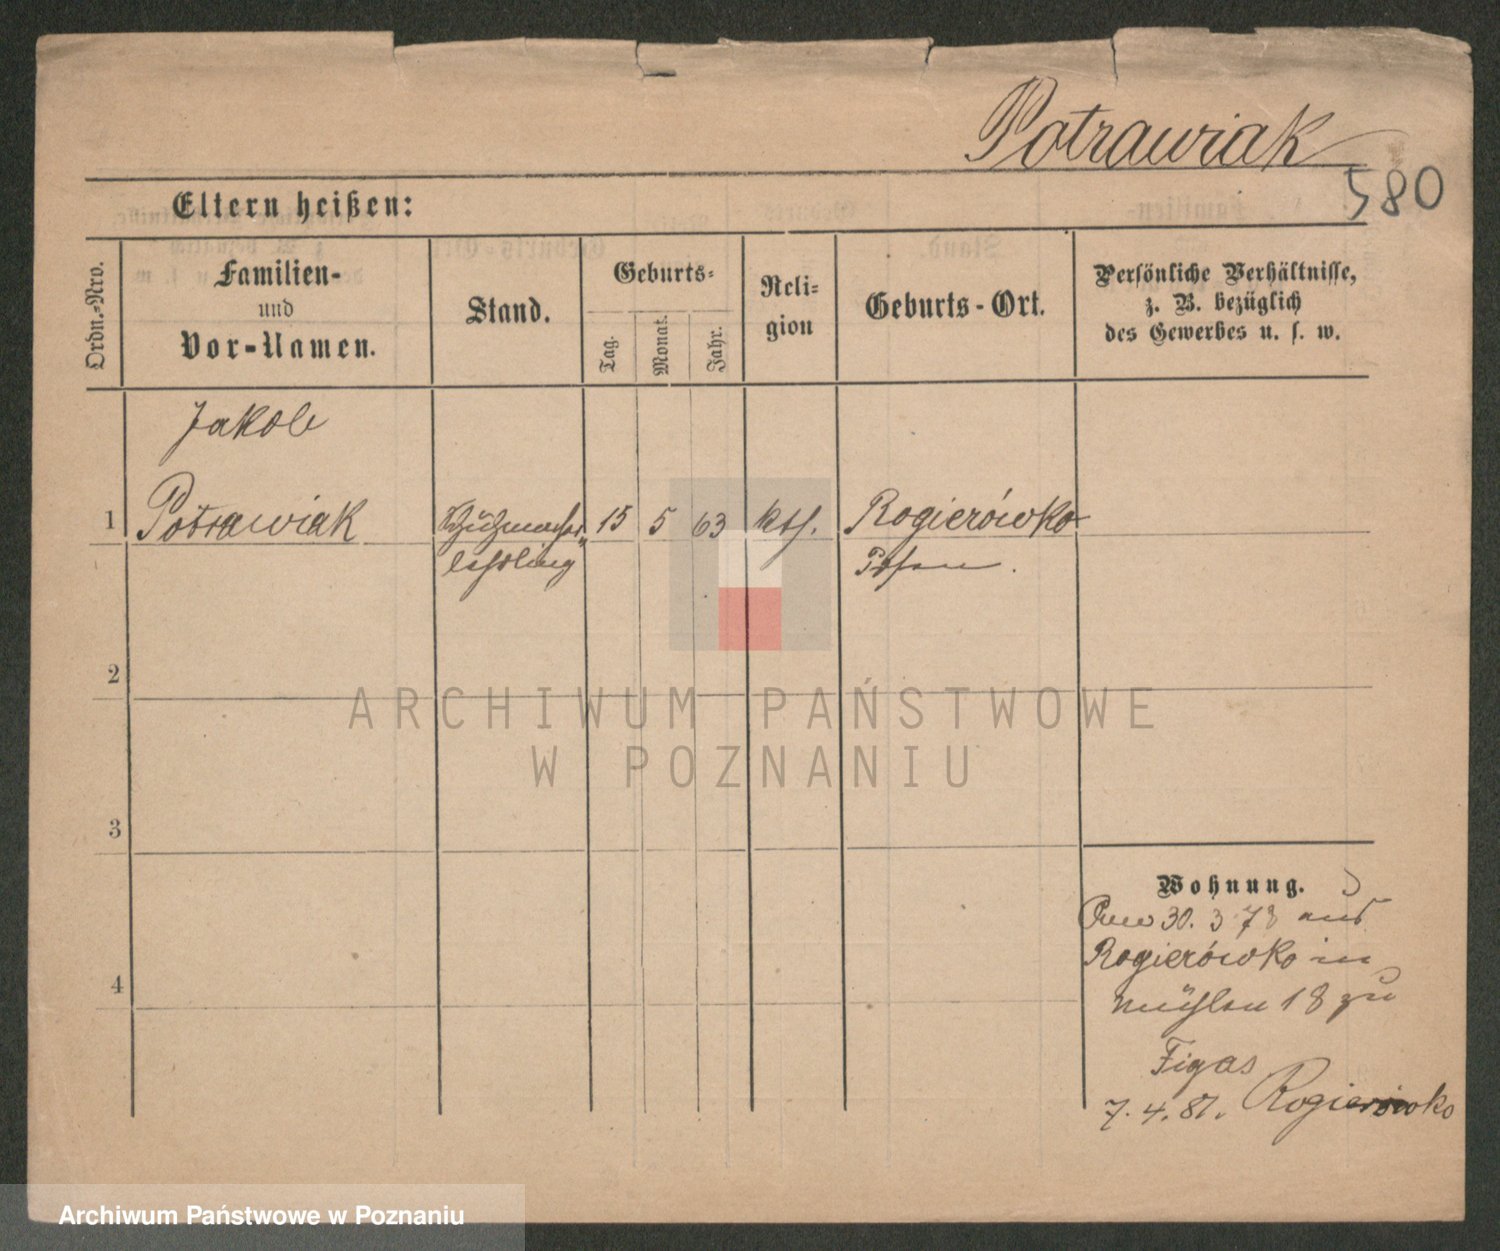 Potrawiak
580
Eltern heißen:
Ordn.-Nro.
Familien-
und
Vor-Namen.
Stand.
Geburts-
Tag.
Monat.
Jahr.
Reli-
gion
Geburts-Ort.
Persönliche Verhältnisse,
z. B. bezüglich
des Gewerbes u. s. w.
Jakob
1 Potrawiak 15 5 63 kth. Rogierówko
lehrling Posen.
2
ARCHIWUM PAŃSTWOWE
W POZNANIU
3
Wohnung.
30. 3 78 aus
Rogierówko in
Mühlen 18 zu
4
Figas
7. 4. 81. Rogierówko
Archiwum Państwowe w Poznaniu